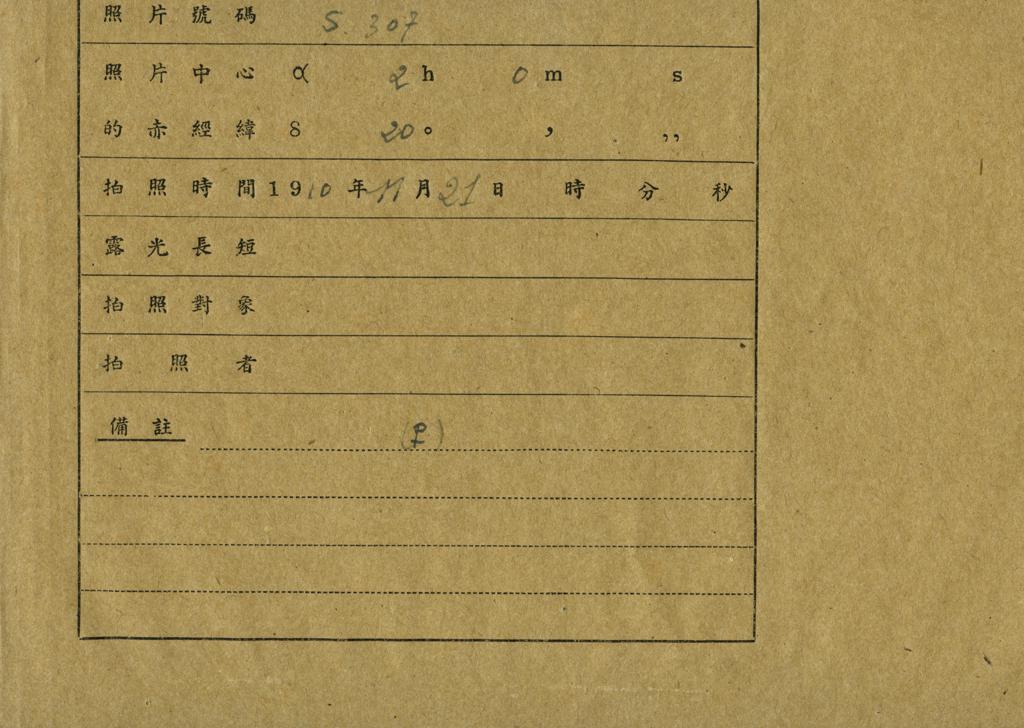 照片號碼 S. 307
照片中心 α 2h 0m s
的赤經緯 δ 20° ′ ″
拍照時間1910年11月21日 時 分 秒
露光長短
拍照對象
拍照者
備註 (P)